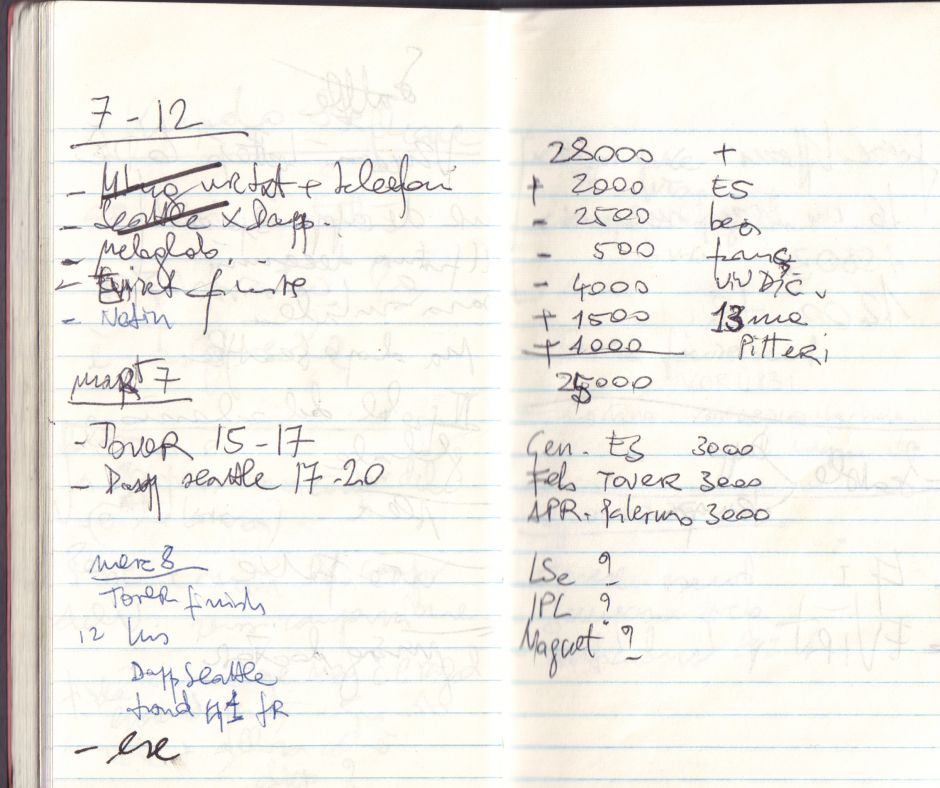 7 - 12
- + telefoni
- Seattle x Dapp.
- Metaglob.
- finire
- Natin
mart 7
- Tover 15-17
- Dapp seattle 17-20
merc 8
Tover finish
12
Dapp Seattle
FR
28000 +
+ 2000 ES
- 2500 bea
- 500
- 4000
+ 1500 13ma
+ 1000 Pitteri
25000
Gen. ES 3000
Feb TOVER 3000
APR. Palermo 3000
LSe ?
IPL ?
Magnet ?